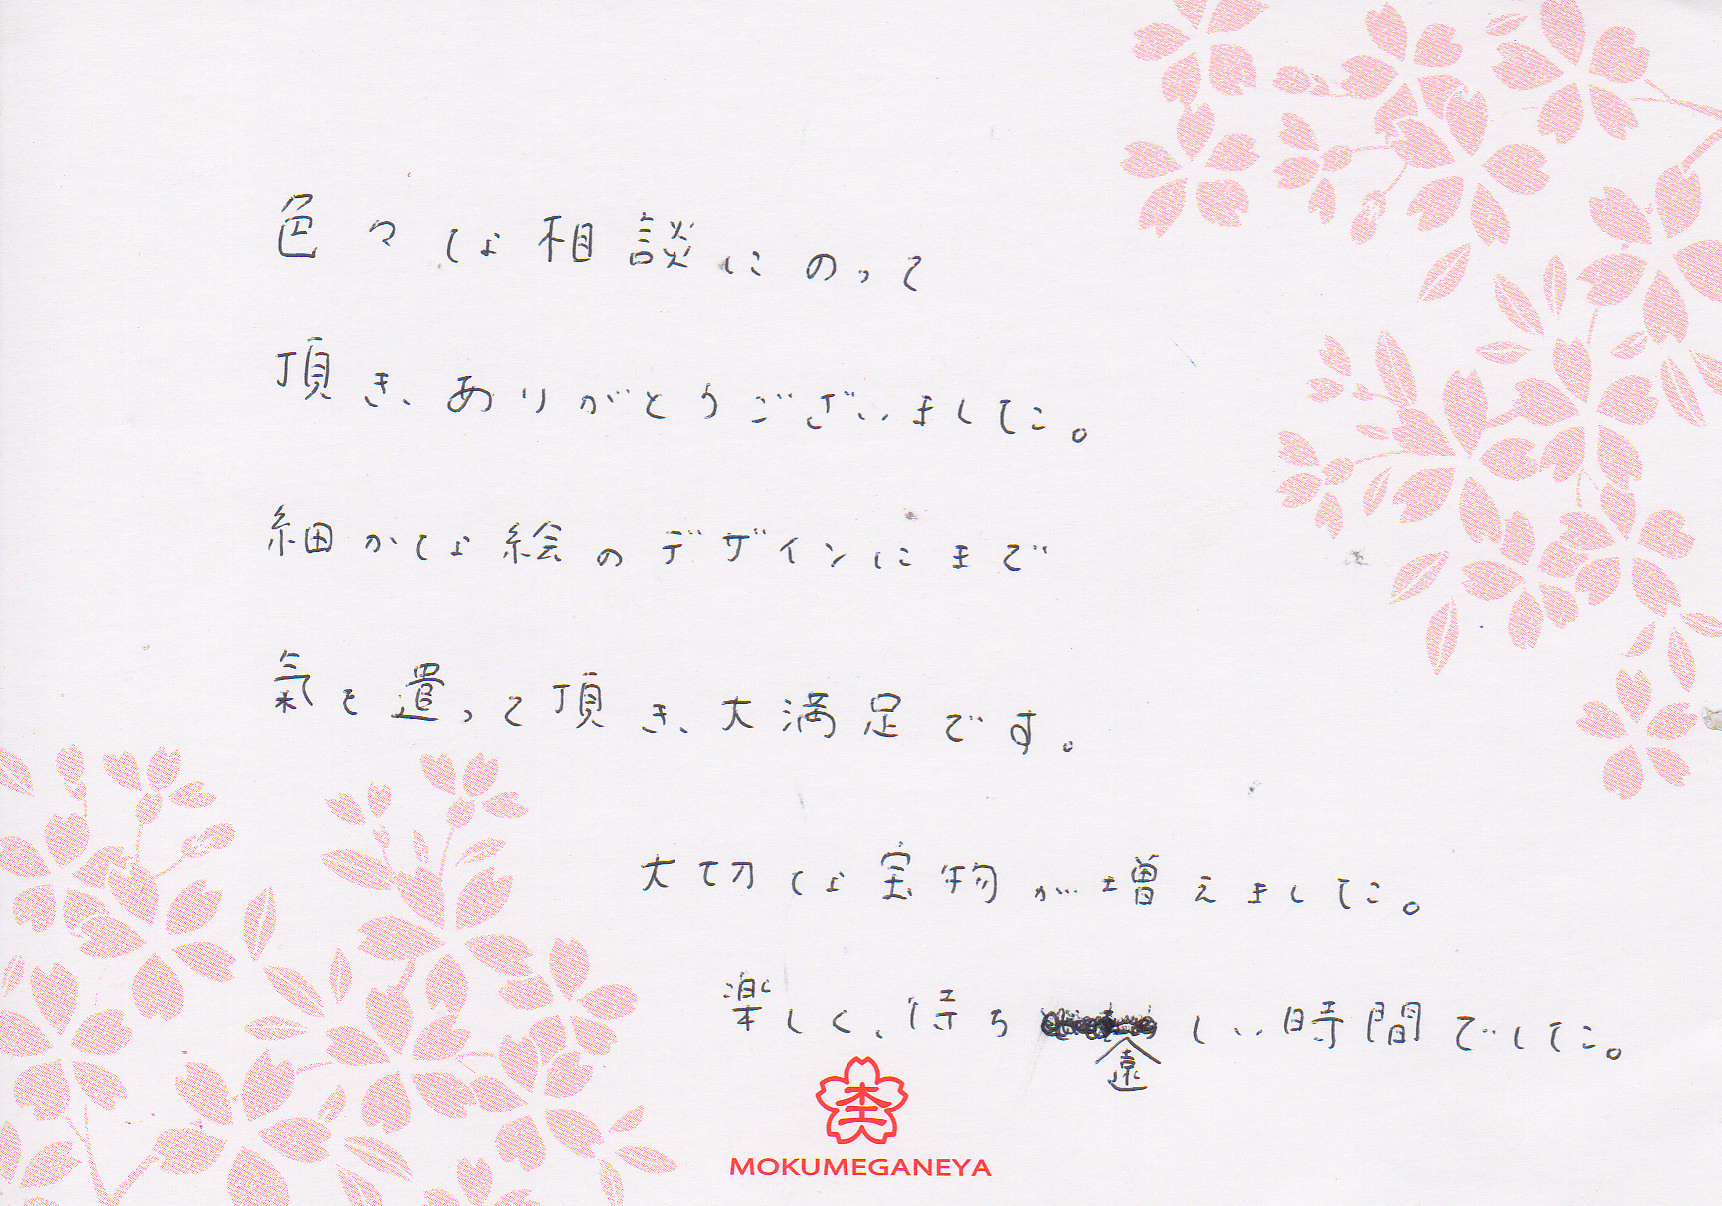 色々な相談にのって
頂き、ありがとうございました。
細かな絵のデザインにまで
氣を遣って頂き、大満足です。
大切な宝物が増えました。
楽しく、待ち遠しい時間でした。
MOKUMEGANEYA